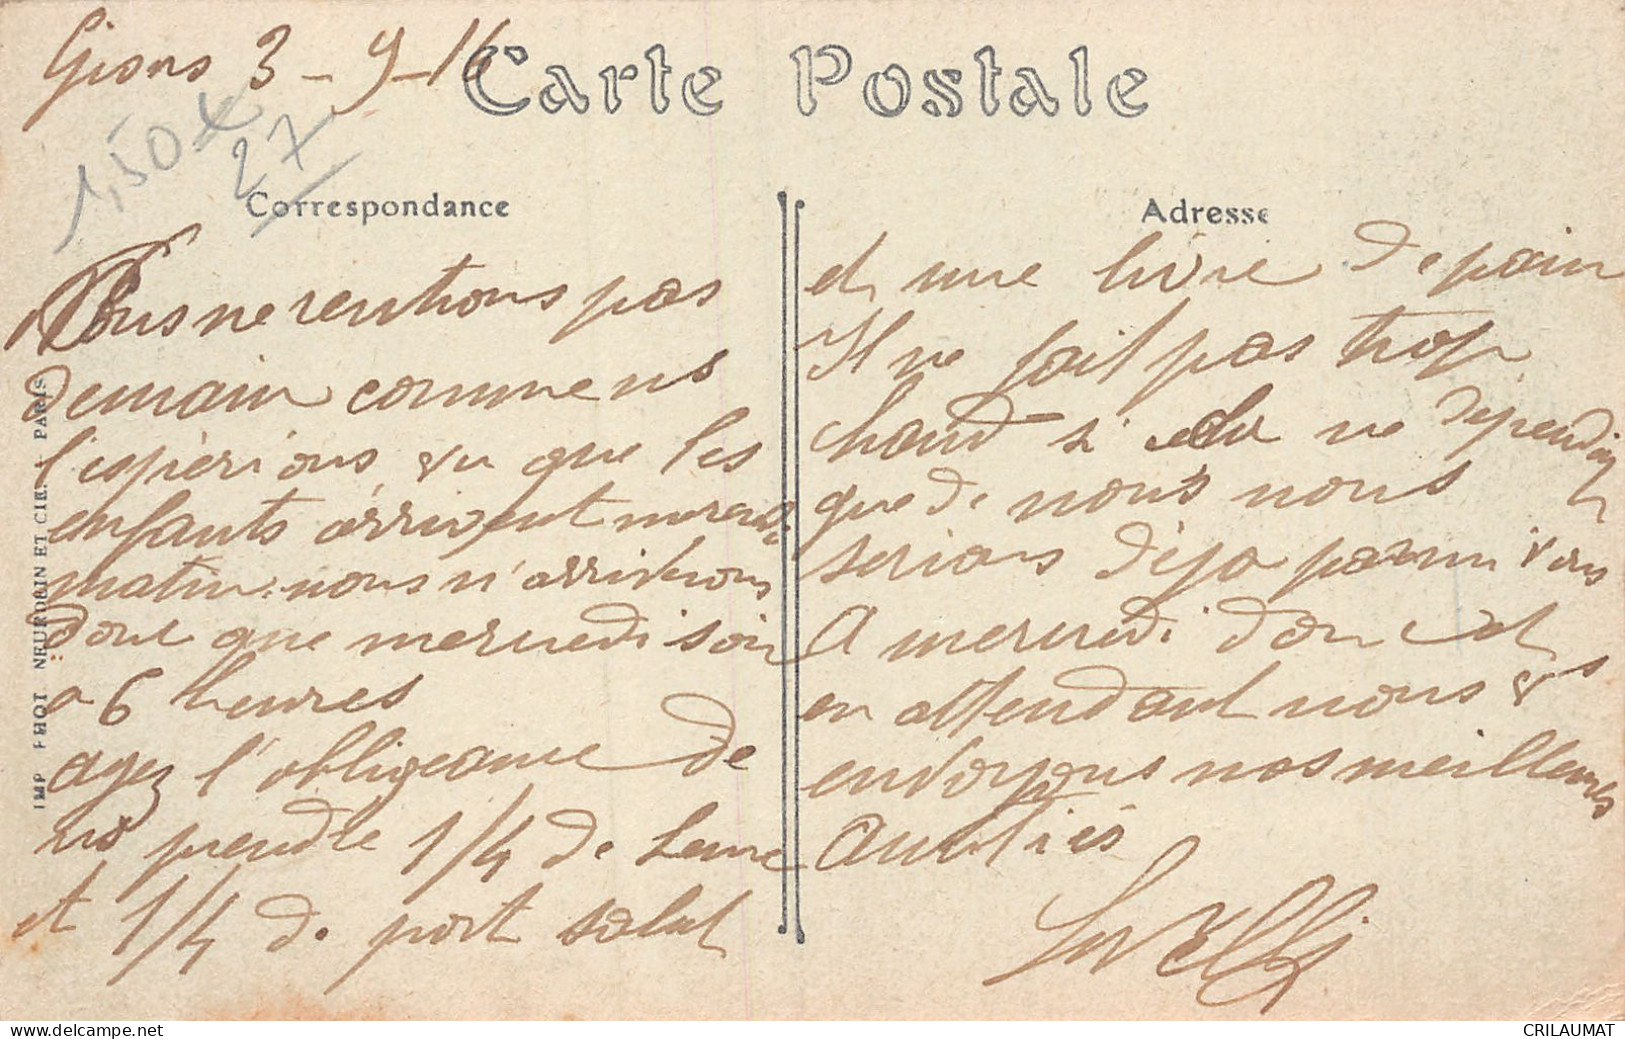 Gions 3-9-16
Carte Postale
1,50€
27
Correspondance
Adresse
Nous ne rentrons pas
demain comme ns
l'espérions, vu que les
enfants arrivent mercredi
matin. nous n'arriverons
donc que mercredi soir
a 6 heures
ayez l'obligeance de
ns prendre 1/4 de
et 1/4 de port salut
et une livre de pain
Il ne fait pas trop
chaud si cela ne dependait
que de nous nous
serions déja parmi vous
A mercredi donc et
en attendant nous vs
envoyons nos meilleures
amitiés
IMP PHOT NEURDEIN ET CIE. - PARIS
www.delcampe.net
CRILAUMAT